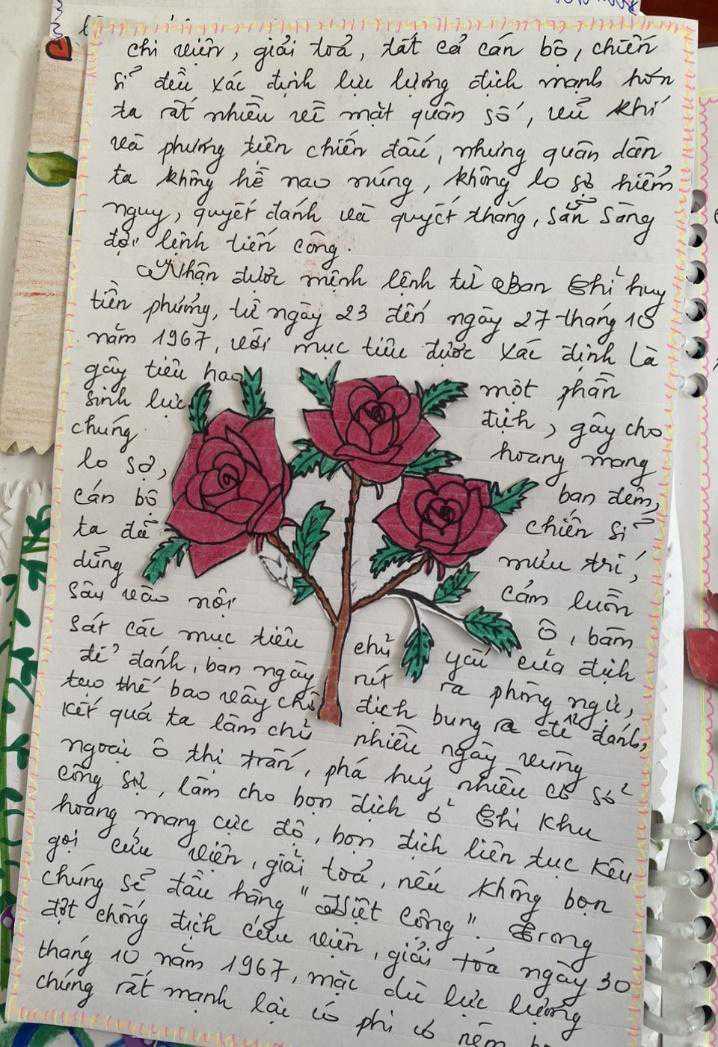 chi viện, giải toả, tất cả cán bộ, chiến
sĩ đều xác định lực lượng địch mạnh hơn
ta rất nhiều về mặt quân số, vũ khí
và phương tiện chiến đấu, nhưng quân dân
ta không hề nao núng, không lo sợ hiểm
nguy, quyết đánh và quyết thắng, sẵn sàng
đợi lệnh tiến công.
Nhận được mệnh lệnh từ Ban Chỉ huy
tiền phương, từ ngày 23 đến ngày 27 tháng 10
năm 1967, với mục tiêu được xác định là
gây tiêu hao một phần
sinh lực địch, gây cho
chúng hoang mang
lo sợ, ban đêm,
cán bộ chiến sĩ
ta đã mưu trí,
dũng cảm luồn
sâu vào nội ô, bám
sát các mục tiêu chủ yếu của địch
để đánh, ban ngày rút ra phòng ngự,
tạo thế bao vây chờ địch bung ra để đánh,
kết quả ta làm chủ nhiều ngày vùng
ngoại ô thị trấn, phá huỷ nhiều cơ sở
công sự, làm cho bọn địch ở Chi Khu
hoang mang cực độ, bọn địch liên tục kêu
gọi cứu viện, giải toả, nếu không bọn
chúng sẽ đầu hàng "Việt Cộng". Trong
đợt chống địch cứu viện, giải toả ngày 30
tháng 10 năm 1967, mặc dù lực lượng
chúng rất mạnh lại có phi cơ ném